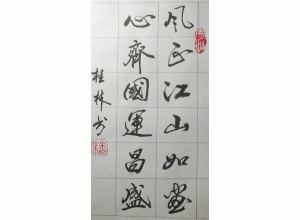 风正江山如画
心齊國運昌盛
桂林书